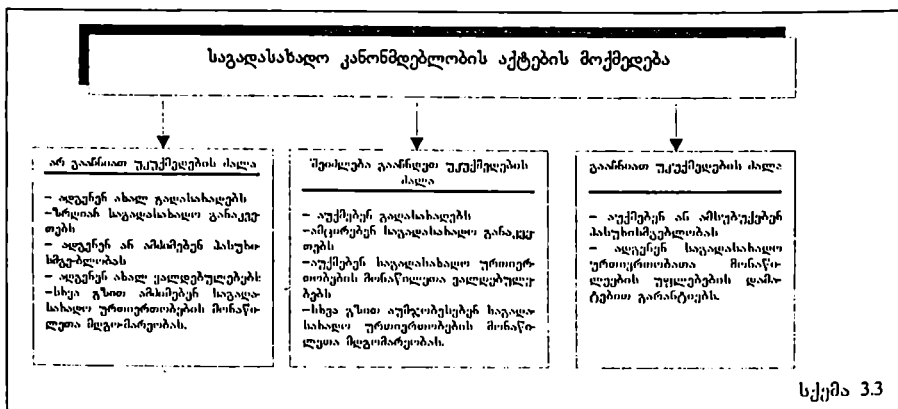 საგადასახადო კანონმდებლობის აქტების მოქმედება
არ გააჩნიათ უკუქმედების ძალა
– ადგენენ ახალ გადასახადებს
–ზრდიან საგადასახადო განაკვე-
თებს
– ადგენენ ან ამძიმებენ პასუხი-
სმგებლობას
– ადგენენ ახალ ვალდებულებებს
–სხვა გზით ამძიმებენ საგადა-
სახადო ურთიერთობების მონაწი-
ლეთა მდგომარეობას.
შეიძლება გააჩნდეთ უკუქმედების
ძალა
– აუქმებენ გადასახადებს
–ამცირებენ საგადასახადო განაკვე-
თებს
–აუქმებენ საგადასახადო ურთიერ-
თობების მონაწილეთა ვალდებულე-
ბებს
–სხვა გზით აუმჯობესებენ საგადა-
სახადო ურთიერთობების მონაწი-
ლეთა მდგომარეობას.
გააჩნიათ უკუქმედების ძალა
– აუქმებენ ან ამსუბუქებენ
პასუხისმგებლობას
– ადგენენ საგადასახადო
ურთიერთობათა მონაწი-
ლეების უფლებების დამა-
ტებით გარანტიებს.
სქემა 3.3